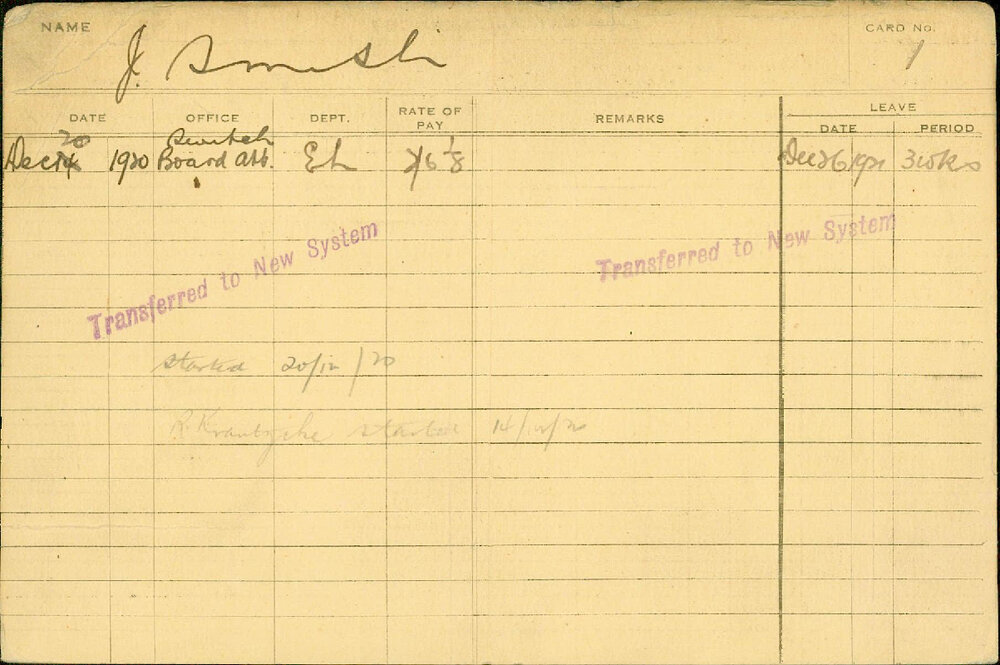 NAME
J. Smith
CARD No.
1
DATE
OFFICE
DEPT.
RATE OF PAY
REMARKS
LEAVE
DATE
PERIOD
Dec 20 1920
Switch Board att.
El
Dec 26 1921
3 wks
Transferred to New System
Transferred to New System
started 20/12/20
R. started 14/12/20